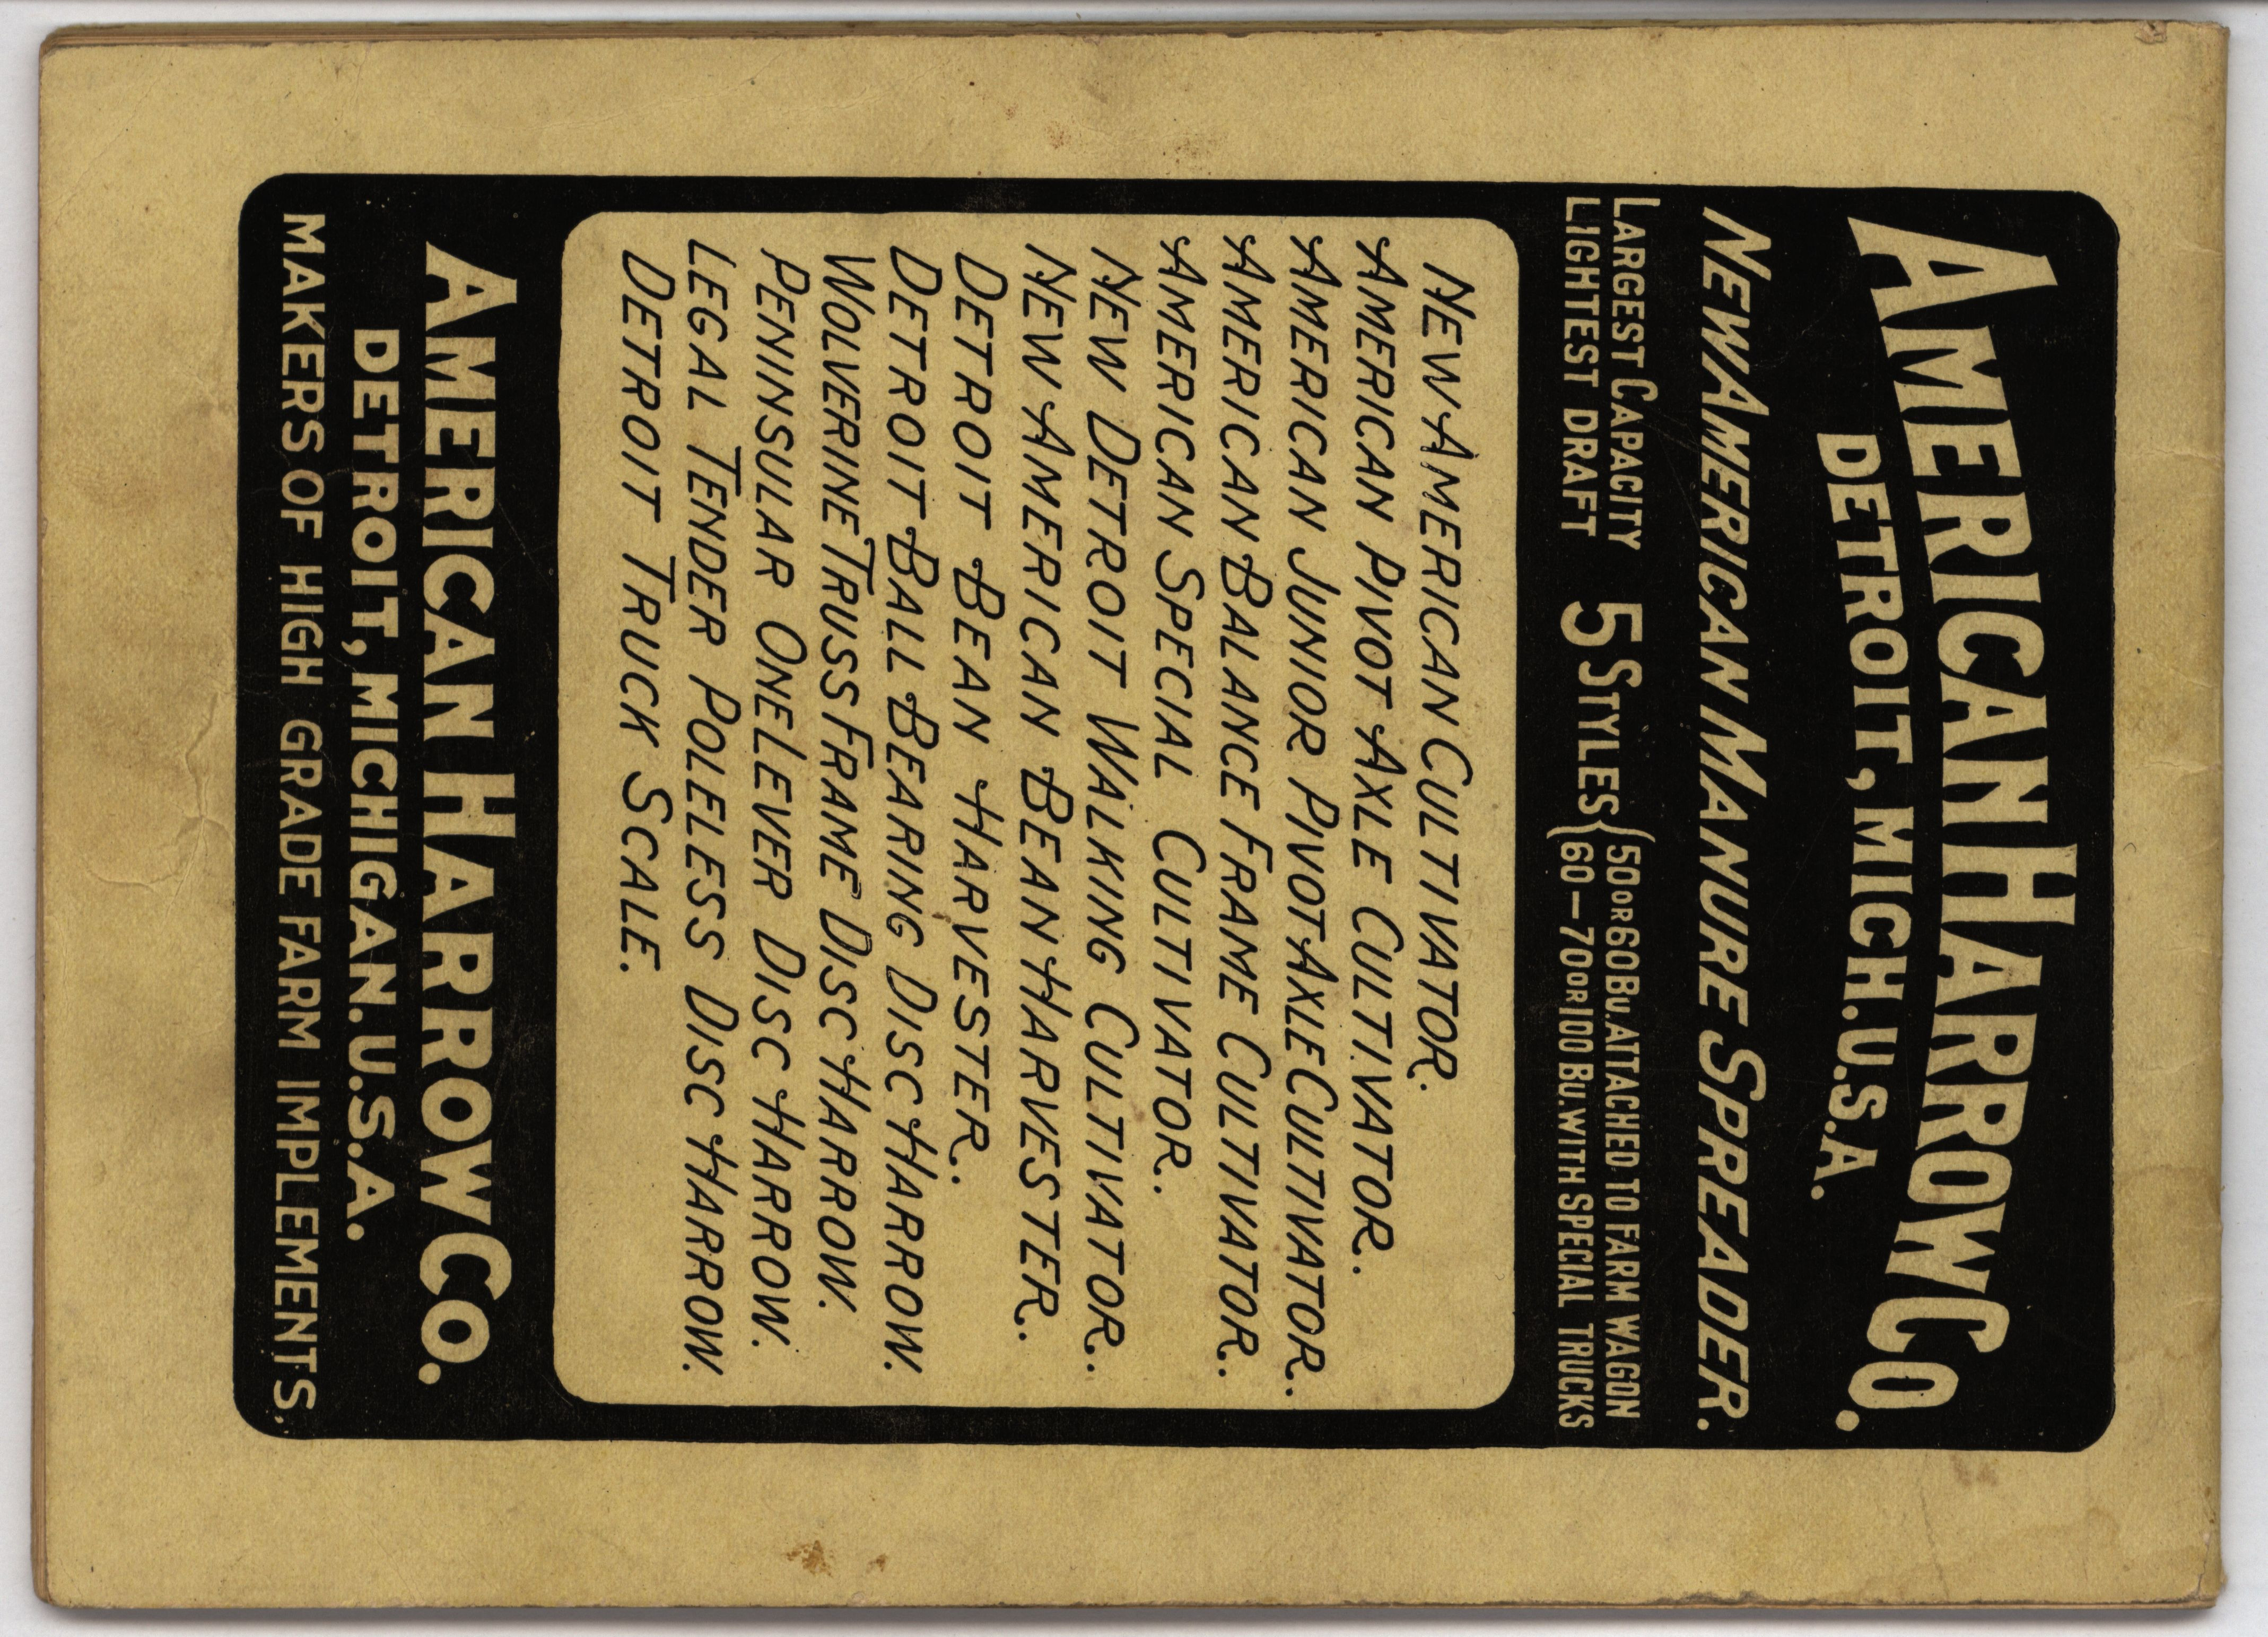 AMERICAN HARROW CO.
DETROIT, MICH. U.S.A.
NEW AMERICAN MANURE SPREADER.
LARGEST CAPACITY
LIGHTEST DRAFT
5 STYLES
50 OR 60 BU. ATTACHED TO FARM WAGON
60-70 OR 100 BU. WITH SPECIAL TRUCKS
NEW AMERICAN CULTIVATOR.
AMERICAN PIVOT AXLE CULTIVATOR.
AMERICAN JUNIOR PIVOT AXLE CULTIVATOR.
AMERICAN BALANCE FRAME CULTIVATOR.
AMERICAN SPECIAL CULTIVATOR.
NEW DETROIT WALKING CULTIVATOR.
NEW AMERICAN BEAN HARVESTER.
DETROIT BEAN HARVESTER.
DETROIT BALL BEARING DISC HARROW.
WOLVERINE TRUSS FRAME DISC HARROW.
PENINSULAR ONE LEVER DISC HARROW.
LEGAL TENDER POLELESS DISC HARROW.
DETROIT TRUCK SCALE.
AMERICAN HARROW CO.
DETROIT, MICHIGAN. U.S.A.
MAKERS OF HIGH GRADE FARM IMPLEMENTS.